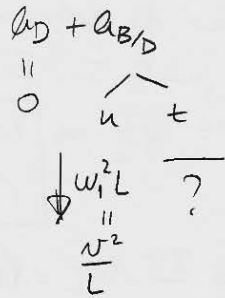 a_D + a_{B/D}
=
0 n t
ω₁²L ?
=
v²/L